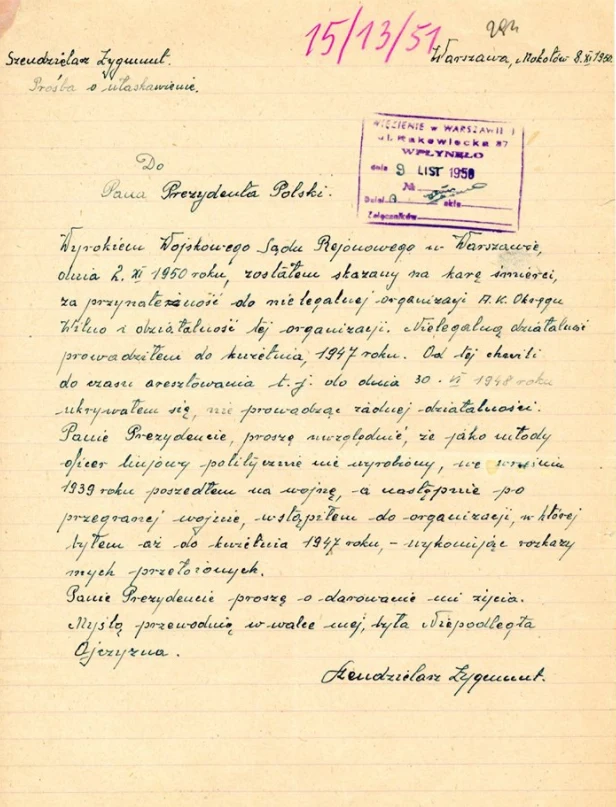 15/13/51
Szendzielarz Zygmunt.
Warszawa, Mokotów 8.XI 1950.
Prośba o ułaskawienie.
WIĘZIENIE w WARSZAWIE I
ul. Rakowiecka 37
WPŁYNĘŁO
dnia 9 LIST 1950
Nr.
Dział akta
Załączników
Do
Pana Prezydenta Polski.
Wyrokiem Wojskowego Sądu Rejonowego w Warszawie,
dnia 2. XI 1950 roku, zostałem skazany na karę śmierci,
za przynależność do nielegalnej organizacji A.K. Okręgu
Wilno i działalność tej organizacji. Nielegalną działalność
prowadziłem do kwietnia, 1947 roku. Od tej chwili
do czasu aresztowania t.j. do dnia 30. VI 1948 roku
ukrywałem się, nie prowadząc żadnej działalności.
Panie Prezydencie, proszę uwzględnić, że jako młody
oficer linjowy politycznie nie wyrobiony, we wrześniu
1939 roku poszedłem na wojnę, a następnie po
przegranej wojnie, wstąpiłem do organizacji, w której
byłem aż do kwietnia 1947 roku, - wykonując rozkazy
mych przełożonych.
Panie Prezydencie proszę o darowanie mi życia.
Myślą przewodnią w walce mej, była Niepodległa
Ojczyzna.
Szendzielarz Zygmunt.